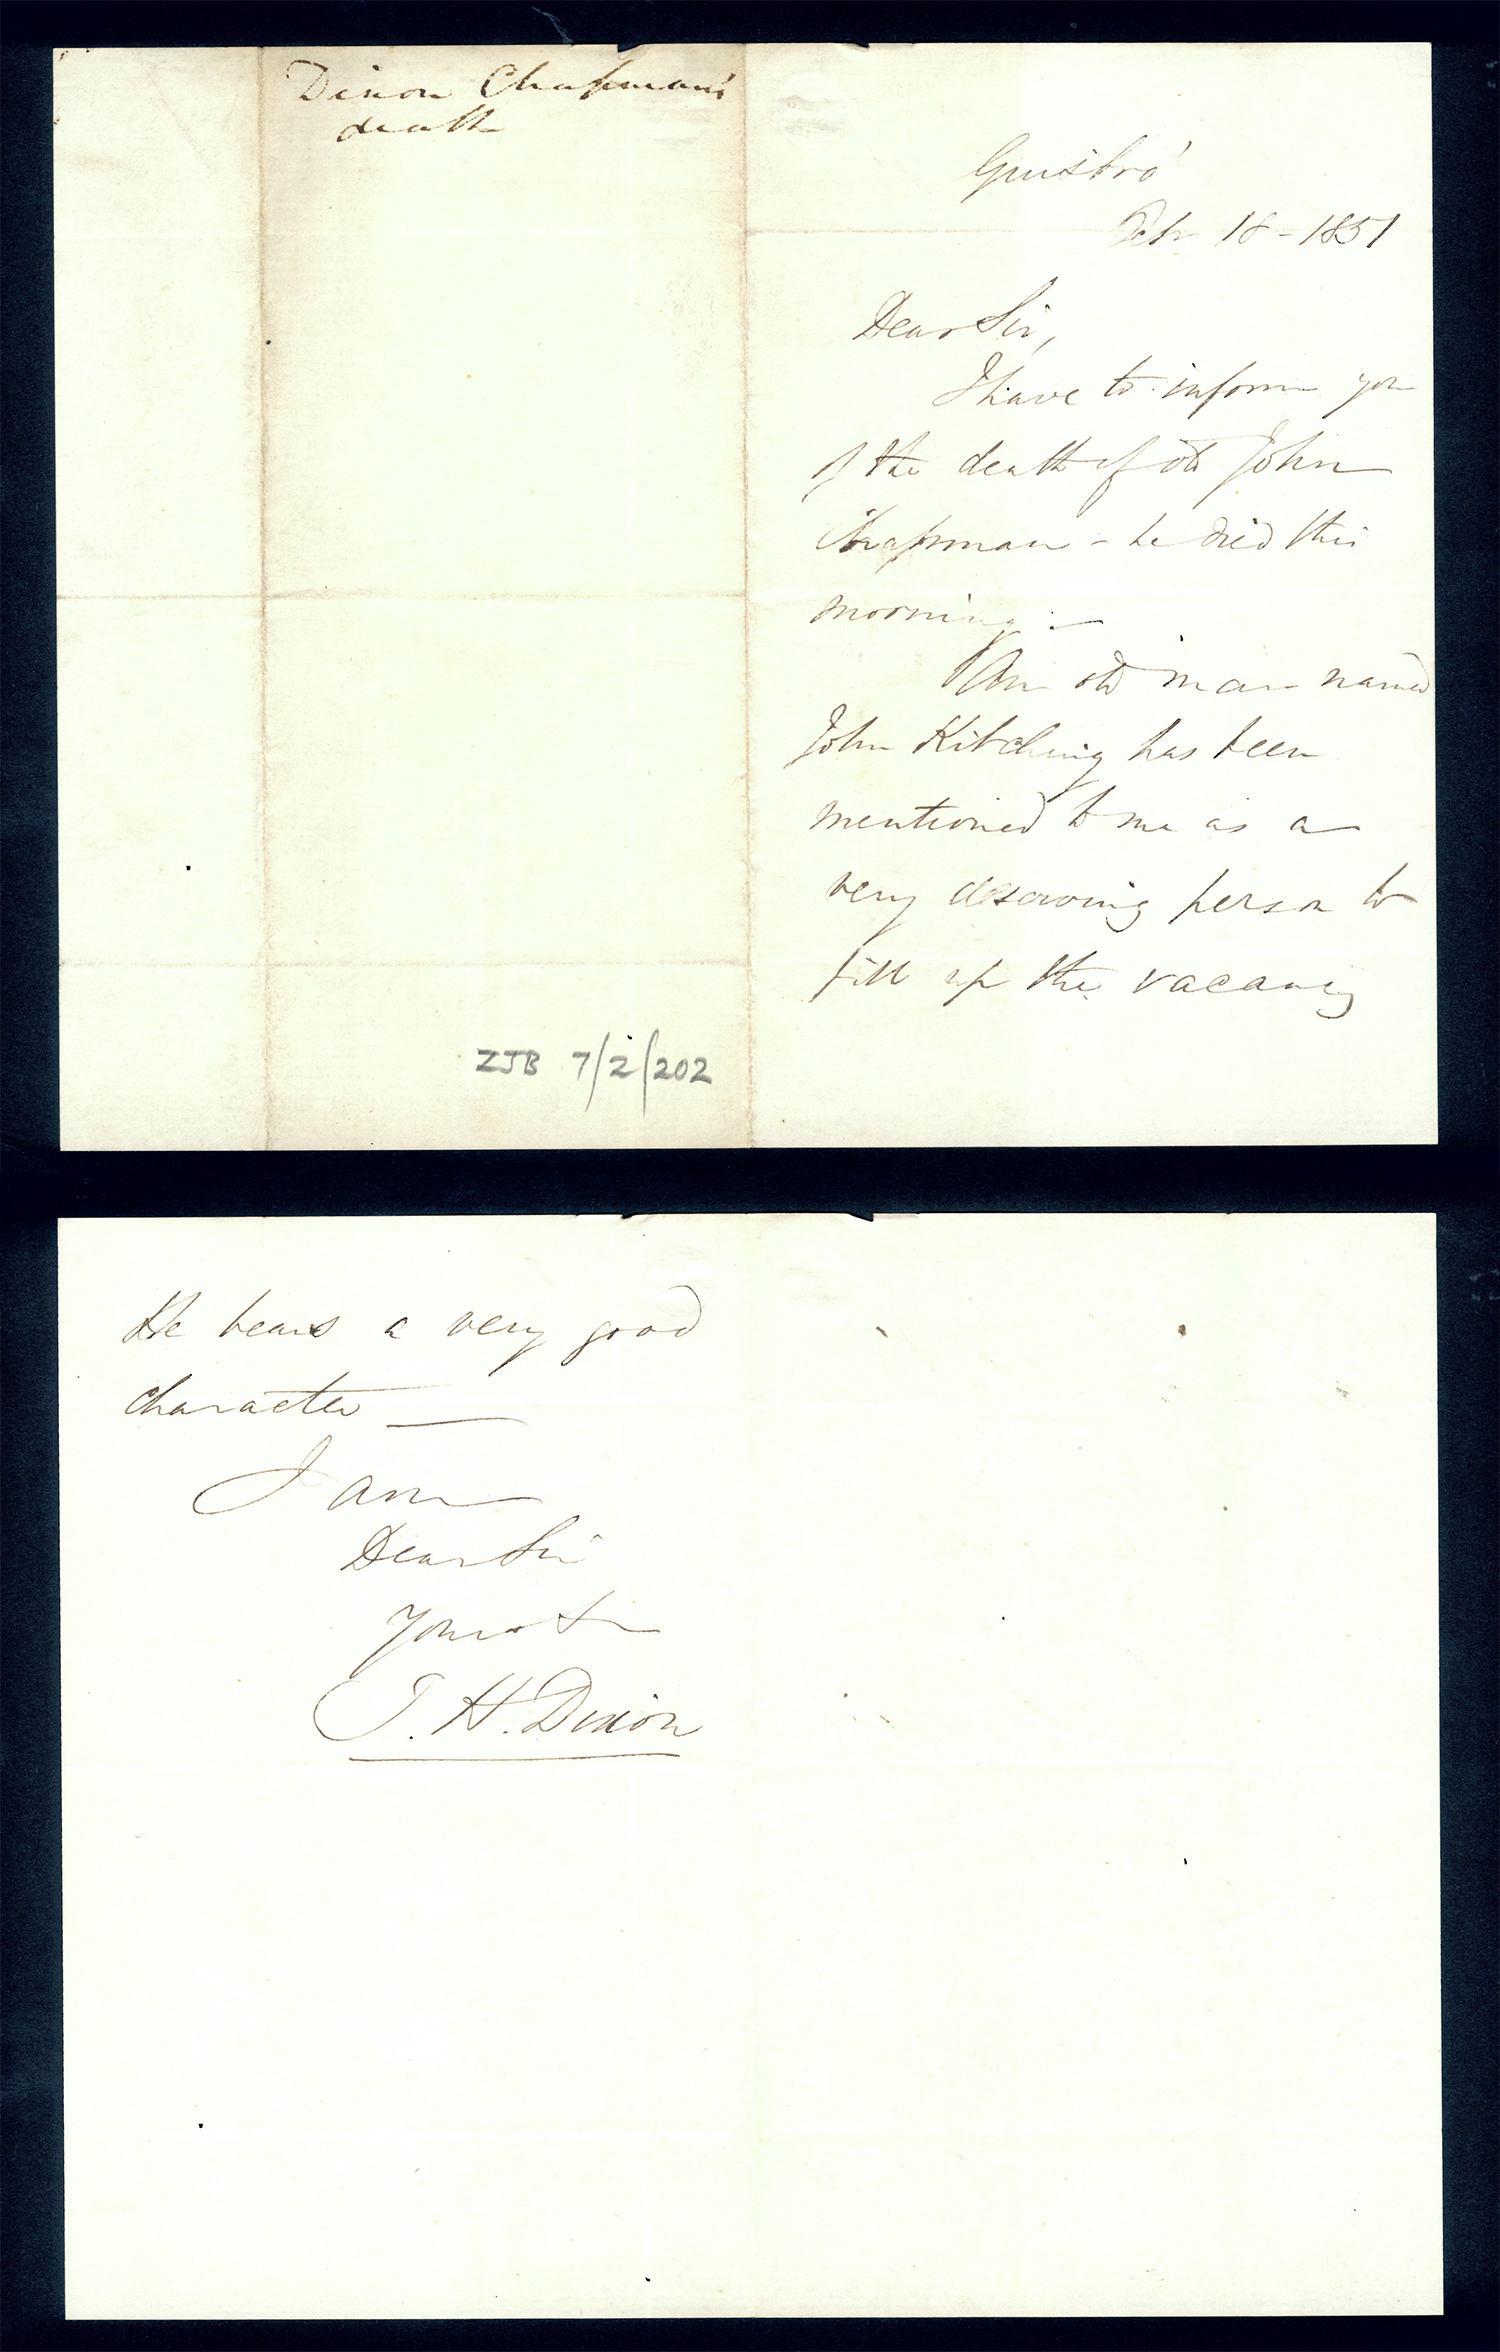 Dixon Chapman's
death
ZJB 7/2/202
Guisbro'
Feb 18 - 1851
Dear Sir,
I have to inform you
of the death of old John
Chapman - he died this
morning -
An old man named
John Kitching has been
mentioned to me as a
very deserving person to
fill up the vacancy
He bears a very good
character —
I am
Dear Sir
Yours
T. H. Dixon